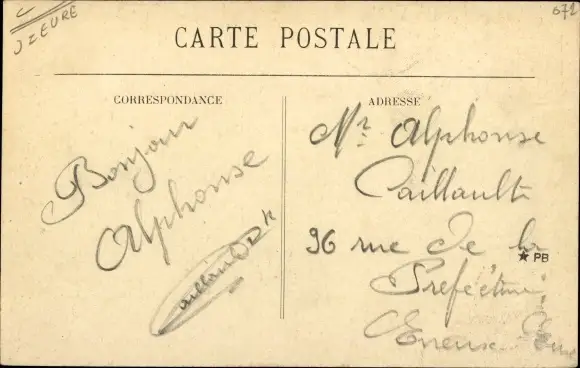 J EURE
672
CARTE POSTALE
CORRESPONDANCE
ADRESSE
Bonjour
Alphonse
Caillault
Mr Alphonse
Caillault
96 rue de la
★ PB
Préfecture
Evreux Eure